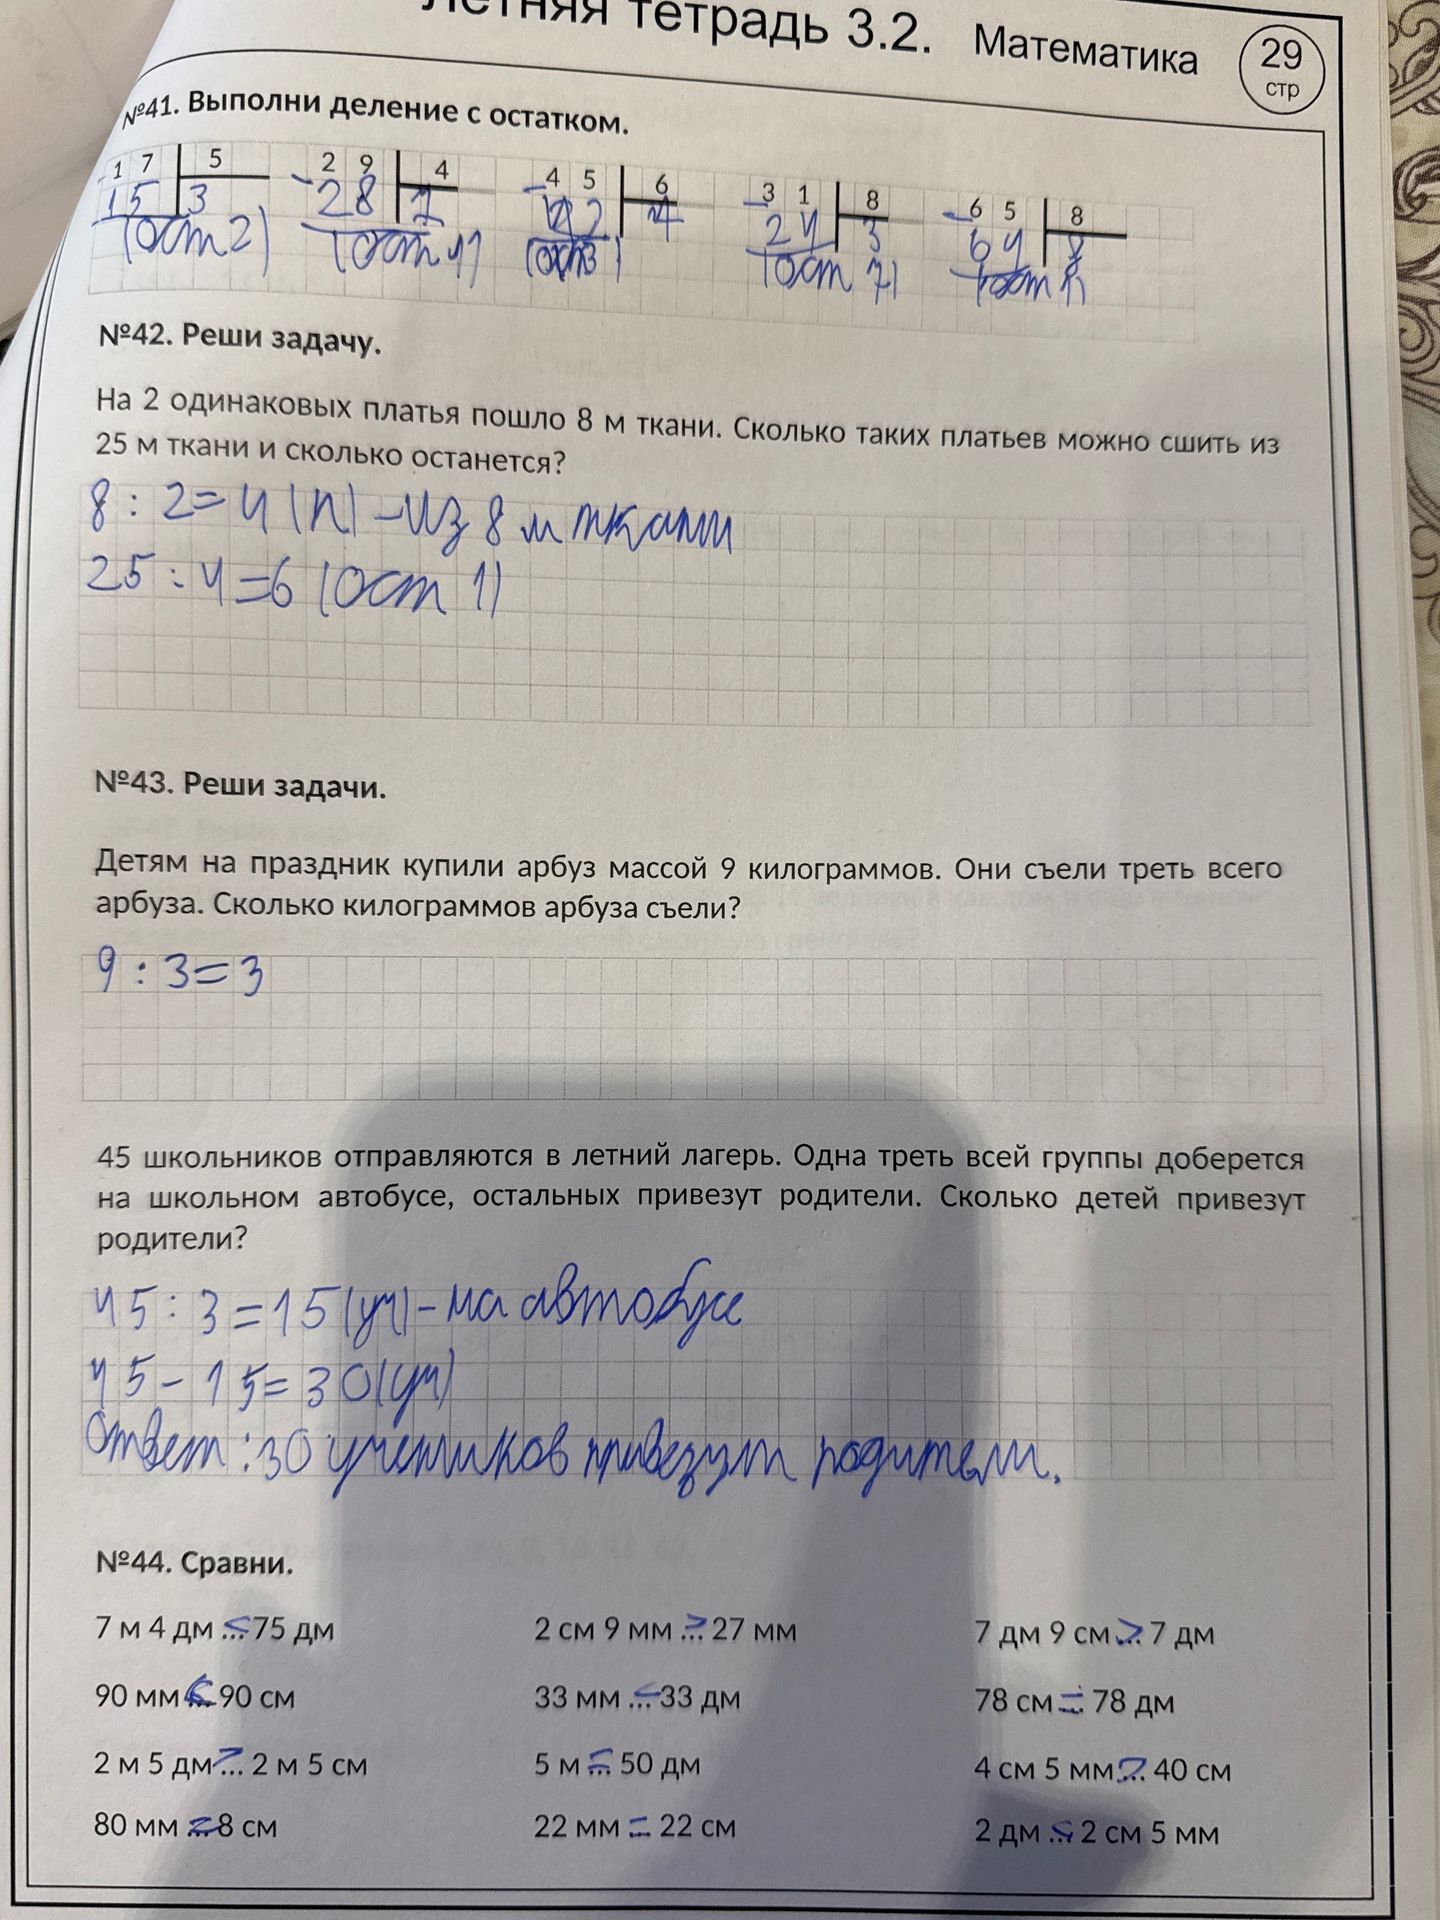 Летняя тетрадь 3.2. Математика 29 стр
№41. Выполни деление с остатком.
17 5 29 4 45 6 31 8 65 8
15 3 28 7 42 24 3 64 8
(ост 2) (ост 1) (ост 3) (ост 7) (ост 1)
№42. Реши задачу.
На 2 одинаковых платья пошло 8 м ткани. Сколько таких платьев можно сшить из
25 м ткани и сколько останется?
8 : 2 = 4 (п) – из 8 м ткани
25 : 4 = 6 (ост 1)
№43. Реши задачи.
Детям на праздник купили арбуз массой 9 килограммов. Они съели треть всего
арбуза. Сколько килограммов арбуза съели?
9 : 3 = 3
45 школьников отправляются в летний лагерь. Одна треть всей группы доберется
на школьном автобусе, остальных привезут родители. Сколько детей привезут
родители?
45 : 3 = 15 (уч) – на автобусе
45 – 15 = 30 (уч)
Ответ : 30 учеников привезут родители.
№44. Сравни.
7 м 4 дм < 75 дм 2 см 9 мм > 27 мм 7 дм 9 см > 7 дм
90 мм < 90 см 33 мм < 33 дм 78 см = 78 дм
2 м 5 дм > 2 м 5 см 5 м = 50 дм 4 см 5 мм > 40 см
80 мм = 8 см 22 мм = 22 см 2 дм < 2 см 5 мм